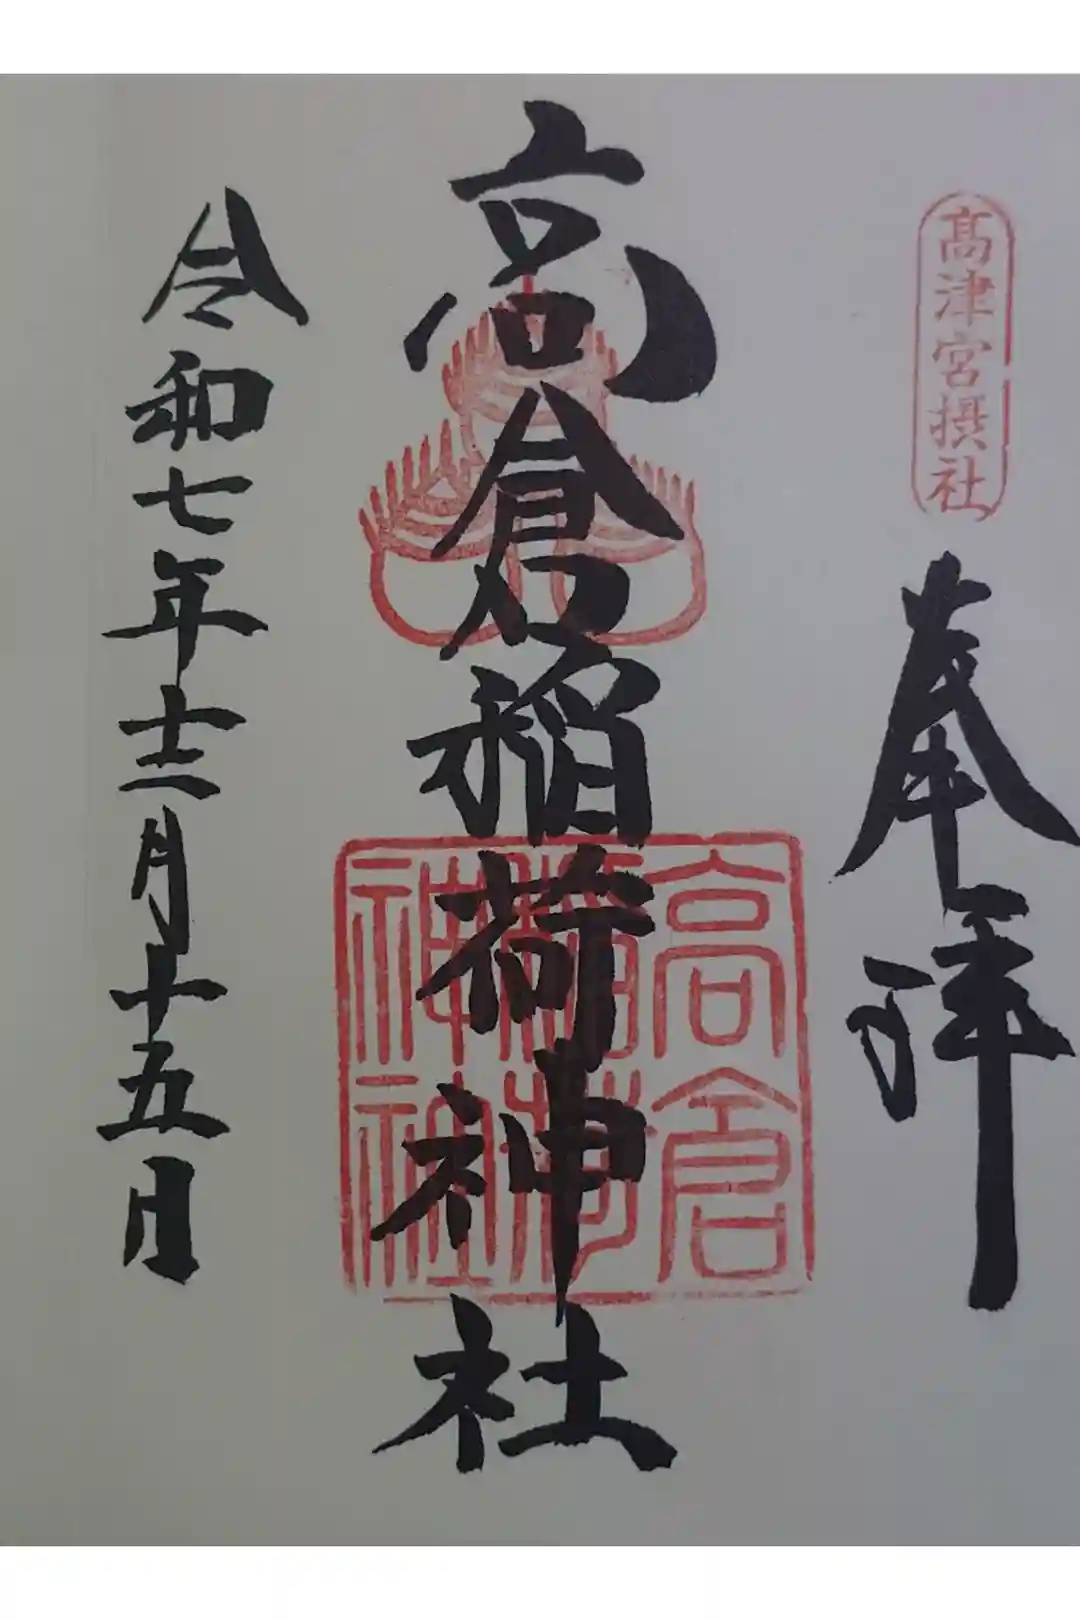 髙津宮摂社
奉拝
高倉稲荷神社
高倉
稲荷
神社
令和七年十二月十五日